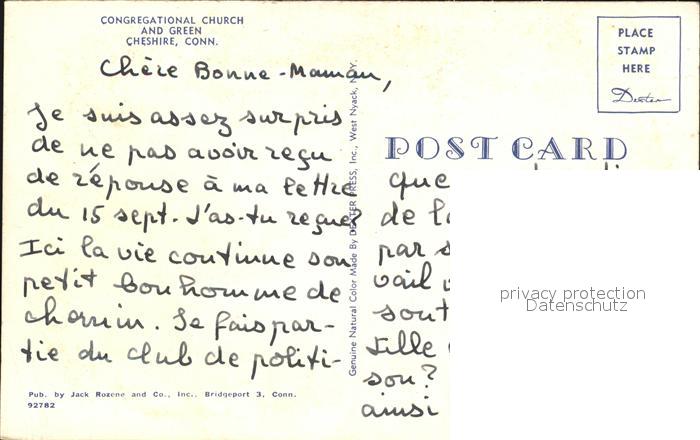 CONGREGATIONAL CHURCH
AND GREEN
CHESHIRE, CONN.
PLACE
STAMP
HERE
Dexter
Chère Bonne-Maman,
Je suis assez surpris
de ne pas avoir reçu
de réponse à ma lettre
du 15 sept. J'as-tu reçue?
Ici la vie continue son
petit bonhomme de
chemin. Je fais par-
tie du club de politi-
Genuine Natural Color Made By DEXTER PRESS, Inc., West Nyack, N.Y.
POST CARD
que
de
par
vail
sont
ville
son?
ainsi
privacy protection
Datenschutz
Pub. by Jack Rozene and Co., Inc., Bridgeport 3, Conn.
92782